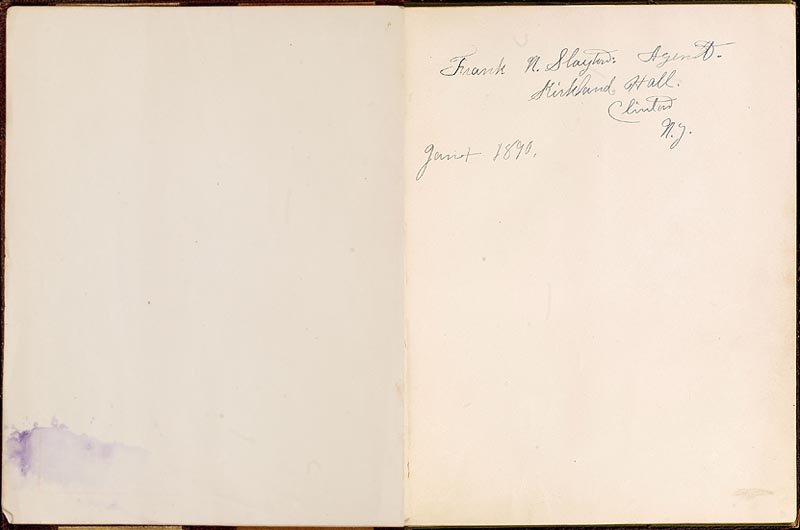 Frank N. Slayton. Agent.
Kirkland Hall.
Clinton
N.Y.
1890.